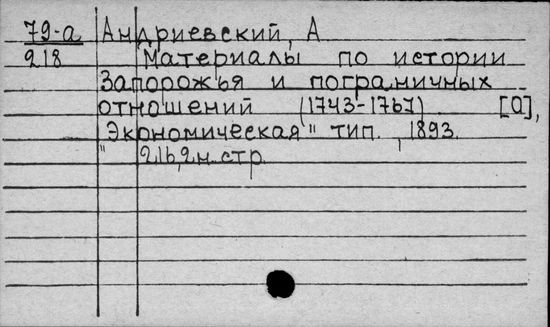 79-а Андриевский, А
218 Материалы по истории
Запорожья и пограничных
отношений (1743-1767) [О],
"Экономическая" тип., 1893.
216,2 н. стр.